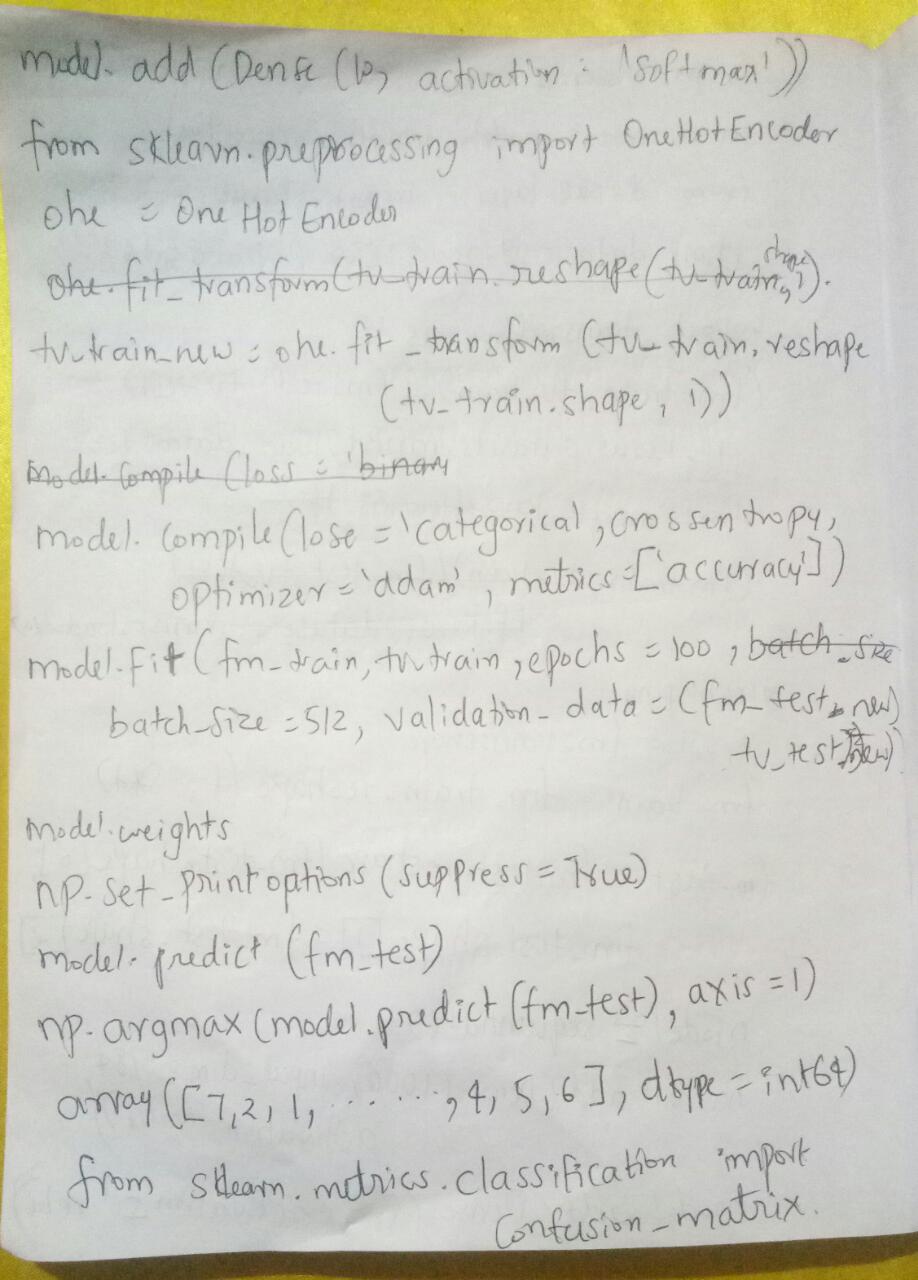 model. add (Dense (10, activation = 'softmax'))
from sklearn.preprocessing import OneHotEncoder
ohe = One Hot Encoder
ohe.fit_transform(tv_train.reshape(tv_train.shape,1).
tv_train_new = ohe. fit_transform (tv_train, reshape
(tv_train.shape, 1))
model. Compile (loss = 'binary
model. Compile (lose = 'categorical, crossentropy,
optimizer = 'adam', metrics = ['accuracy'])
model.fit (fm_train, tv train, epochs = 100, batch_size
batch_size = 512, validation_data = (fm_test, new)
tv_test new)
model.weights
np. set_print options (suppress = True)
model. predict (fm_test)
np. argmax (model.predict (fm_test), axis = 1)
array ([7,2,1, ......,4,5,6], dtype = int64)
from sklearn. metrics. classification import
Confusion_matrix.